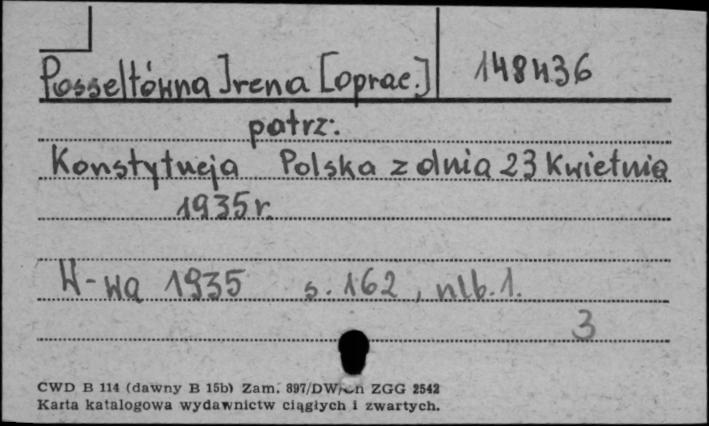 Posseltówna Irena [oprac.] 148436
patrz:
Konstytucja Polska z dnia 23 Kwietnia
1935 r.
W-wa 1935 s. 162, nlb. 1.
3
CWD B 114 (dawny B 15b) Zam. 897/DW/ ZGG 2542
Karta katalogowa wydawnictw ciągłych i zwartych.